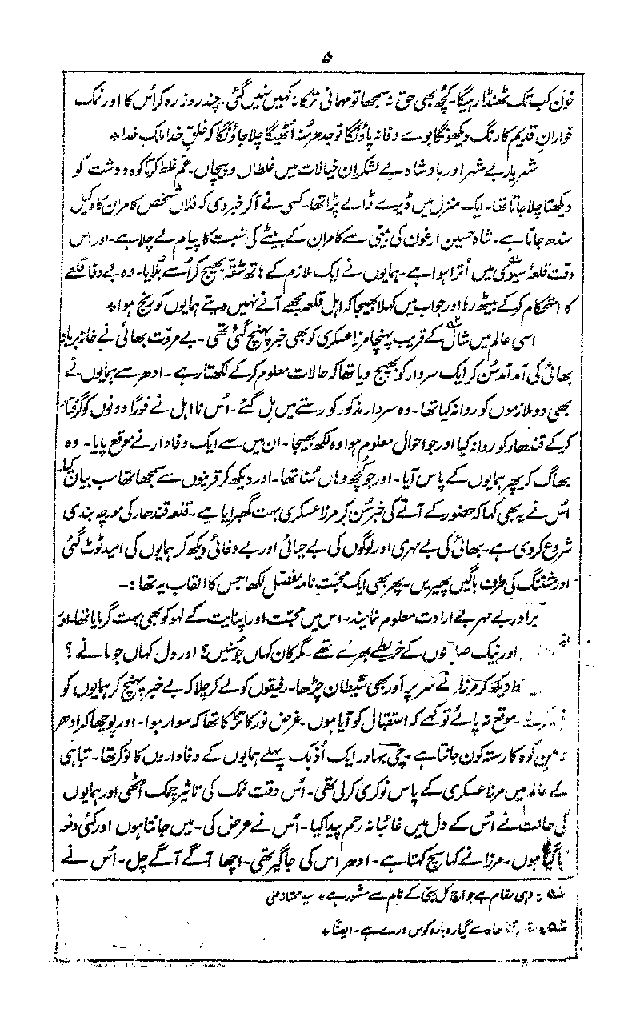 ۵
خون کب تک ٹھنڈا رہیگا۔ کچھ بھی حق نہ سمجھا تو مہمانی تو کہیں نہیں گئی۔ چند روز رہ کر اُس کا اور نمک
خوارانِ قدیم کا رنگ دیکھونگا بوے وفا نہ پاؤنگا تو جدھر مُنہ اُٹھیگا چلا جاؤنگا کہ خلقِ خدا ملک خدا *
شہریار بے شہر اور بادشاہ بے لشکر ان خیالات میں غلطاں و پیچاں۔ غم غلط کرتا کوہ و دشت کو
دیکھتا چلا جاتا تھا۔ ایک منزل میں ڈیرے ڈالے پڑا تھا۔ کسی نے آکر خبر دی کہ فلاں شخص کامران کا وکیل
سندھ جاتا ہے۔ شاہ حسین ارغون کی بیٹی سے کامران کے بیٹے کی نسبت کا پیام لے چلا ہے۔ اور اس
وقت قلعہ سیوی میں اُترا ہوا ہے۔ ہمایوں نے ایک ملازم کے ہاتھ شقہ بھیج کر اُسے بُلایا۔ وہ بے وفا قلعے
کا استحکام کرکے بیٹھ رہا اور جواب میں کہلا بھیجا کہ اہل قلعہ مجھے آنے نہیں دیتے ہمایوں کو رنج ہوا *
اسی عالم میں شال کے قریب پہنچا مرزا عسکری کو بھی خبر پہنچ گئی تھی۔ بے مروّت بھائی نے خانہ برباد
بھائی کی آمد آمد سُن کر ایک سردار کو بھیج دیا تھا کہ حالات معلوم کرکے لکھتا رہے۔ ادھر سے ہمایوں نے
بھی دو ملازموں کو روانہ کیا تھا۔ وہ سردار مذکور کو رستے میں مل گئے۔ اُس نا اہل نے فوراً دونوں کو گرفتار
کرکے قندھار کو روانہ کیا اور جو احوال معلوم ہوا وہ لکھ بھیجا۔ ان میں سے ایک وفادار نے موقع پایا۔ وہ
بھاگ کر پھر ہمایوں کے پاس آیا۔ اور جو کچھ وہاں سُنا تھا۔ اور دیکھ کر قرینوں سے سمجھا تھا سب بیان کیا
اُس نے یہ بھی کہا کہ حضور کے آنے کی خبر سُن کر مرزا عسکری بہت گھبرایا ہے۔ قلعہ قندھار کی مورچہ بندی
شروع کر دی ہے۔ بھائی کی بے مہری اور لوگوں کی بے حیائی اور بے وفائی دیکھ کر ہمایوں کی امید ٹوٹ گئی
اور مشتنگ کی طرف باگیں پھیریں۔ پھر بھی ایک محبت نامہ مفصّل لکھا جس کا القاب یہ تھا :-
برادر بے مہر بے ارادت معلوم نمایند۔ اس میں محبّت اور اپنایت کے لہو کو بھی بہت گرمایا تھا اور
اور نیک صلاحوں کے خریطے بھرے تھے مگر کان کہاں جو سُنیں؟ اور دل کہاں جو مانے؟
خط دیکھ کر مرزا کے سر پر اور بھی شیطان چڑھا۔ رفیقوں کو لے کر چلا کہ بے خبر پہنچ کر ہمایوں کو
موقع نہ پائے تو کہے کہ استقبال کو آیا ہوں۔ غرض نور کا تڑکا تھا کہ سوار ہوا۔ اور پوچھا کہ ادھر
کا رستہ کون جانتا ہے۔ چپی بہادر ایک اُذبک پہلے ہمایوں کے وفاداروں کا نوکر تھا۔ تباہی
کے عالم میں مرزا عسکری کے پاس نوکری کر لی تھی۔ اُس وقت نمک کی تاثیر چمک اُٹھی اور ہمایوں
کی حالت نے اُس کے دل میں غائبانہ رحم پیدا کیا۔ اُس نے عرض کی۔ میں جانتا ہوں اور کئی دفعہ
آیا گیا ہوں۔ مرزا نے کہا سچ کہتا ہے۔ ادھر اس کی جاگیر تھی۔ اچھا آگے آگے چل۔ اُس نے
وہی مقام ہے جو آج کل سبی کے نام سے مشہور ہے *
سے گیارہ بارہ کوس ورے ہے۔ ایضاً *